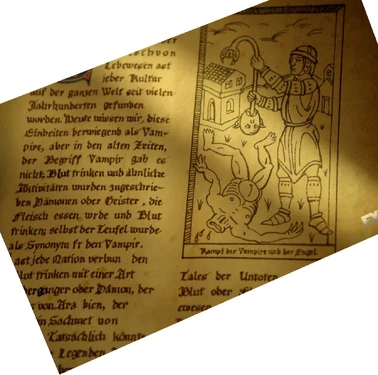 schvon
Lebewesen ast
jeber Kultur
auf der ganzen Welt seit vielen
Jahrhunderten gefunden
worden. Heute wissen wir, diese
Einheiten berwiegend als Vam-
pire, aber in den alten Zeiten,
der Begriff Vampir gab es
nicht; Blut trinken und ähnliche
Aktivitäten wurden zugeschrie-
ben Dämonen ober Geister, die
Fleisch essen wrde und Blut
trinken; selbst der Teufel wurde
als Synonym fr den Vampir.
ast jede Nation verbun den
lut trinken mit einer Art
erganger ober Dämon, der
von Ara bien, der
in Sachmet von
Tatsächlich könnte
Legenden
Kampf der Vampire und der Engel
Tales der Untoten
Blut ober
ewesen